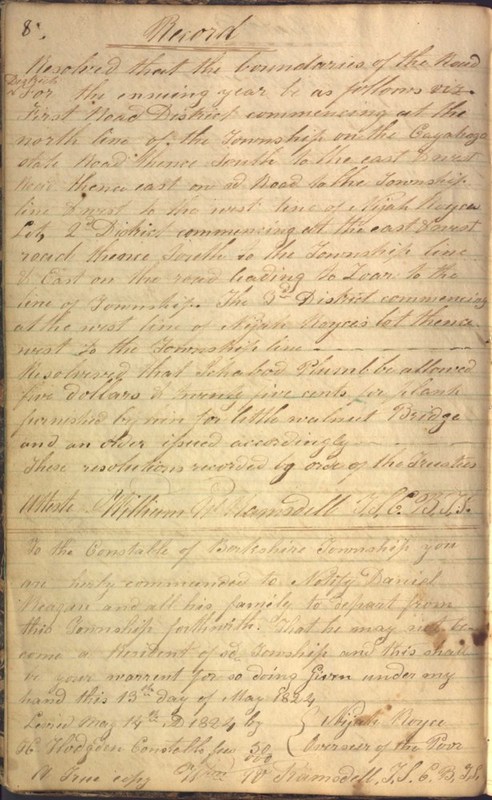 8. Record
Resolved that the boundaries of the Road
Districts
For the ensuing year be as follows viz
First Road District commencing at the
north line of the Township on the Cayahoga
State Road thence South to the east & west
road thence east on sd Road to the Township
line & west to the west line of Nijah Royces
Lot, 2d District commencing at the east & west
road thence South to the Township line
& East on the road leading to to the
line of Township. The 3d District commencing
at the west line of Nijah Royces lot thence
west to the Township line
Resolved that Ichabod Plumb be allowed
five dollars & twenty five cents for plank
furnished by him for little walnut Bridge
and an order issued accordingly
These resolutions recorded by order of the Trustees
Atteste William W Ramsdell T.S.C. B.T.S.
To the Constable of Berkshire Township you
are herby commanded to Notify Daniel
Reagen and all his family to depart from
this Township forthwith. That he may not be
come a Resident of sd Township and this shall
be your warrent for so doing Given under my
hand this 13th day of May 1824
Served May 14th AD 1824 by Nijah Royce
Hodgden Constable fees 50 Overseer of the Poor
A True copy W Ramsdell, T.S.C. B.T.S.